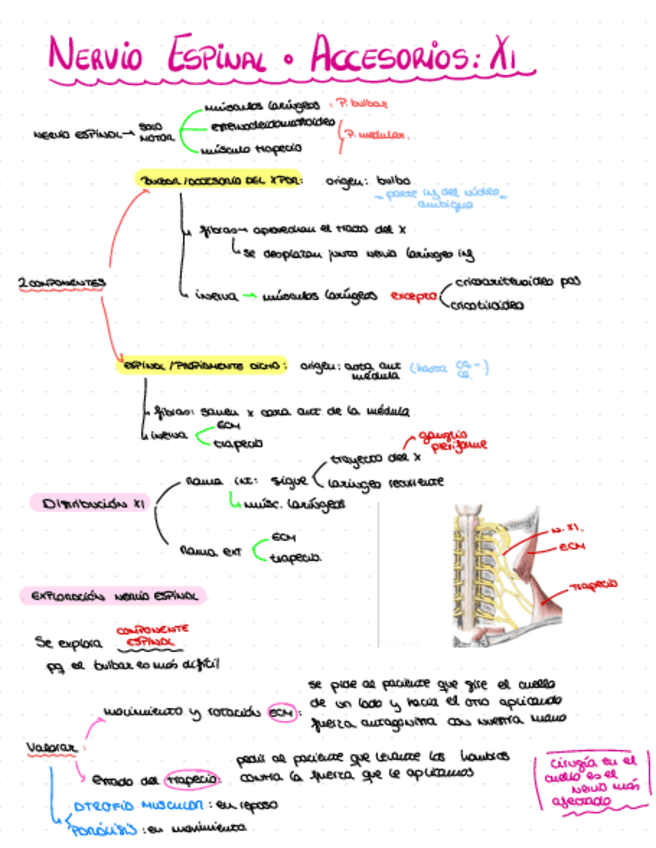 NERVIO ESPINAL o ACCESORIOS: XI
músculos laríngeos : P. bulbar
NERVIO ESPINAL → SOLO MOTOR
esternocleidomastoideo
músculo trapecio
P. medular.
BULBAR / ACCESORIO DEL X PAR: origen: bulbo
- parte inf del núcleo ambiguo
fibras → aprovechan el tracto del X
se desplazan junto nervio laríngeo inf
2 COMPONENTES
inerva → músculos laríngeos excepto
cricoaritenoideo pos
cricotiroideo
ESPINAL / PROPIAMENTE DICHO: origen: asta ant médula (hasta C5-C6)
fibras: salen x cara ant de la médula
inerva
ECM
trapecio
ganglio
trayecto del X
Rama int: sigue
laringeo recurrente
músc. laríngeos
Distribución XI
Rama ext
ECM
trapecio.
N. XI.
ECM
Trapecio
EXPLORACIÓN NERVIO ESPINAL
Se explora COMPONENTE ESPINAL
pq el bulbar es más difícil
se pide al paciente que gire el cuello
movimiento y rotación ECM: de un lado y hacia el otro aplicando
fuerza antagonista con nuestra mano
Valorar:
pedir al paciente que levante los hombros
Estado del trapecio: contra la fuerza que le aplicamos
ATROFIA MUSCULAR: en reposo
PARÁLISIS: en movimiento
Cirugía en el
cuello es el
nervio más
afectado